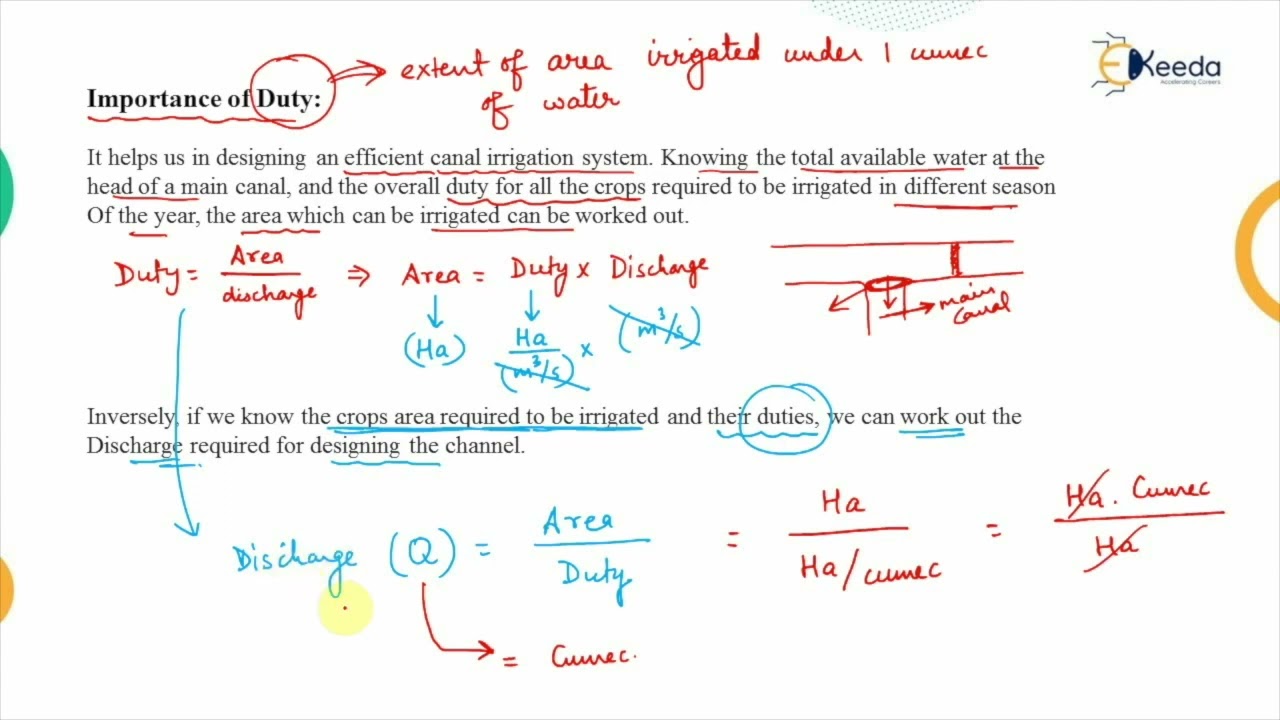 extent of area irrigated under 1 cumec
of water
EKeeda
Accelerating Careers
Importance of Duty:
It helps us in designing an efficient canal irrigation system. Knowing the total available water at the
head of a main canal, and the overall duty for all the crops required to be irrigated in different season
Of the year, the area which can be irrigated can be worked out.
Duty = Area / discharge ⇒ Area = Duty × Discharge
main
canal
(Ha) Ha / (m³/s) × (m³/s)
Inversely, if we know the crops area required to be irrigated and their duties, we can work out the
Discharge required for designing the channel.
Discharge (Q) = Area / Duty = Ha / Ha/cumec = Ha . Cumec / Ha
= Cumec.